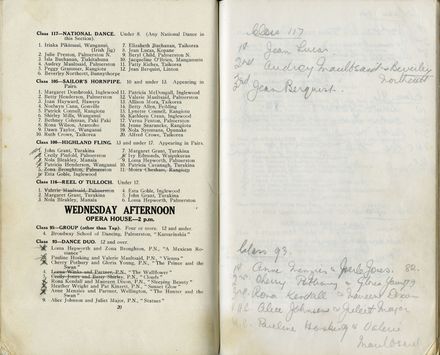 Class 117—NATIONAL DANCE. Under 8. (Any National Dance in
this Section).
1 Iriaka Pikimaui, Wanganui
(Irish Jig)
2 Julie Preston, Palmerston N.
3 Isla Buchanan, Tiakitahuna
4 Audrey Maultsaid, Palmerston
5 Peggy Grammer, Rangiora
6 Beverley Northcott, Bunnythorpe
7 Elizabeth Buchanan, Taikorea
8 Jean Lucas, Kopane
9 Beryl Child, Palmerston N.
10 Jacqueline O'Brien, Manganoiti
11 Patty Riches, Taikorea
12 Jean Berquist, Linton
Class 105—SAILOR'S HORNPIPE. 10 and under 12. Appearing in
Pairs.
1 Margaret Dombroski, Inglewood
2 Betty Henderson, Palmerston
3 Joan Hayward, Hawera
4 Norhwyn Cann, Gonville
5 Patrick Connell, Rangiora
6 Shirley Mills, Wanganui
7 Rodney Colman, Paki Paki
8 Rona Wilson, Aramoho
9 Dawn Taylor, Wanganui
10 Ruth Crowe, Taikorea
11 Patricia McDougall, Inglewood
12 Valerie Maultsaid, Palmerston
13 Allison Mora, Taikorea
14 Betty Allen, Feilding
15 Lynette Connell, Rangiora
16 Kathleen Crann, Inglewood
17 Verna Fenton, Palmerston
18 Jenne Searancke, Rangiora
19 Nola Symmans, Opunake
20 Alfred Crowe, Taikorea
Class 100—HIGHLAND FLING. 13 and under 17. Appearing in Pairs.
John Grant, Turakina
Cecily Pinfold, Palmerston
Nola Bleakley, Manaia
Patricia Henderson, Wanganui
Zona Broughton, Palmerston
Etta Goble, Inglewood
7 Margaret Grant, Turakina
Ivy Edmonds, Waipukurau
9 Lorna Hepworth, Palmerston
10 Patricia Cavanagh, Turakina
Class 116—REEL O' TULLOCH. Under 17.
1 Valerie Maultsaid, Palmerston
2 John Grant, Turakina
3 Nola Bleakley, Manaia
4 Etta Goble, Inglewood
5 Margaret Grant, Turakina
6 Lorna Hepworth, Palmerston
WEDNESDAY AFTERNOON
OPERA HOUSE—2 p.m.
Class 95—GROUP (other than Tap). Four or more. 12 and under.
4 Broadway School of Dancing, Palmerston, "Kamarinskia"
Class 93—DANCE DUO. 12 and over.
Lorna Hepworth and Zona Broughton, P.N., "A Mexican Ro-
mance"
Pauline Hosking and Valerie Maultsaid, P.N., "Vienna"
Cherry Pothury and Gloria Young, P.N., "The Prince and the
Swan"
"The Wallflower"
Cecily Jones and Betty Shirley, P.N., "Clouds"
Rona Kendall and Maureen Dixon, P.N., "Sleeping Beauty"
Heather Wright and Pat Kinvett, P.N., "Sunset Glow"
Anne Menzies and Partner, Wellington, "The Hunter and the
Swan"
9 Alice Johnson and Juliet Major, P.N., "Statues"
20
Class 117
1st Jean Lucas
2nd Audrey Maultsaid & Beverley
Northcott
3rd Jean Berquist.
Class 93.
1st Anne Menzies &
2nd Cherry Pothury & Gloria Young
3rd Rona Kendall & Maureen Dixon
H.C. Alice Johnson & Juliet Major
C. Pauline Hosking & Valerie
Maultsaid